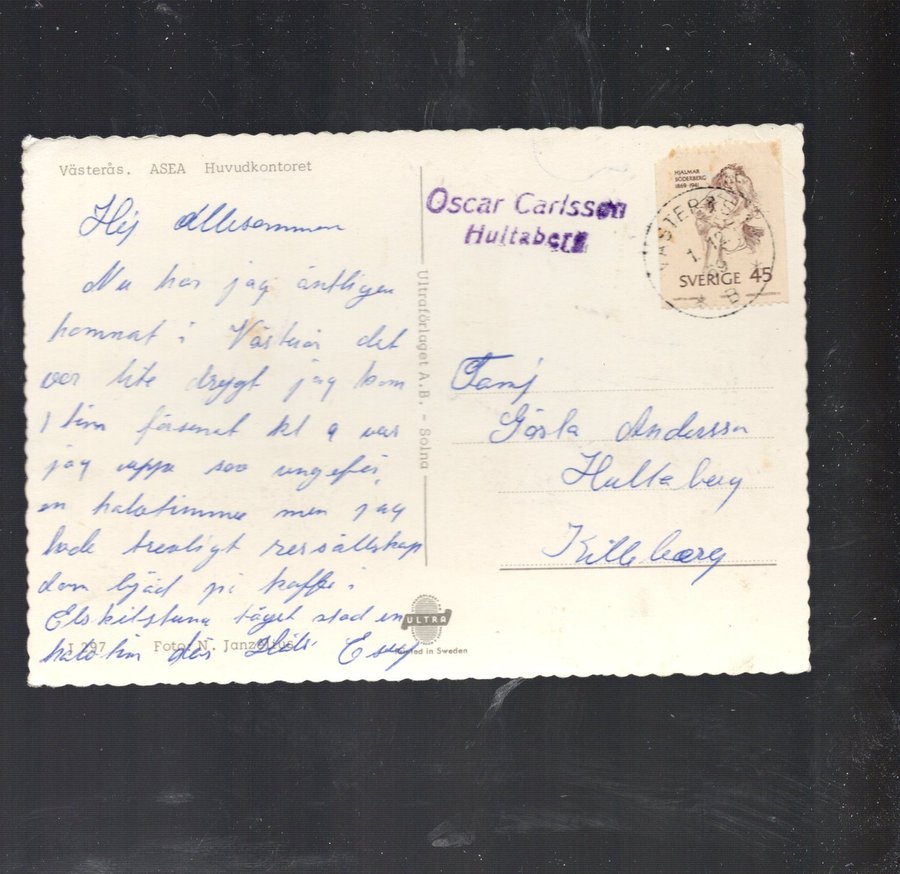 Västerås. ASEA Huvudkontoret
Hej Allesamman
Nu har jag äntligen
hommat i Västerås det
var lite drygt jag kom
1 tim försenat kl 9 var
jag uppe sov ungefär
en halvtimme men jag
hade trevligt ressällskap
dom bjöd på kaffe i
Elskilstuna tåget stod en
halvtim där
J 297 Foto: N. Janzelius
Ultraförlaget A.B. - Solna
ULTRA
Printed in Sweden
Oscar Carlsson
Hultaberg
HJALMAR
SÖDERBERG
1869-1941
SVERIGE 45
VÄSTERÅS 1
1.12
69
* B *
Famj
Gösta Andersson
Hultaberg
Killeberg